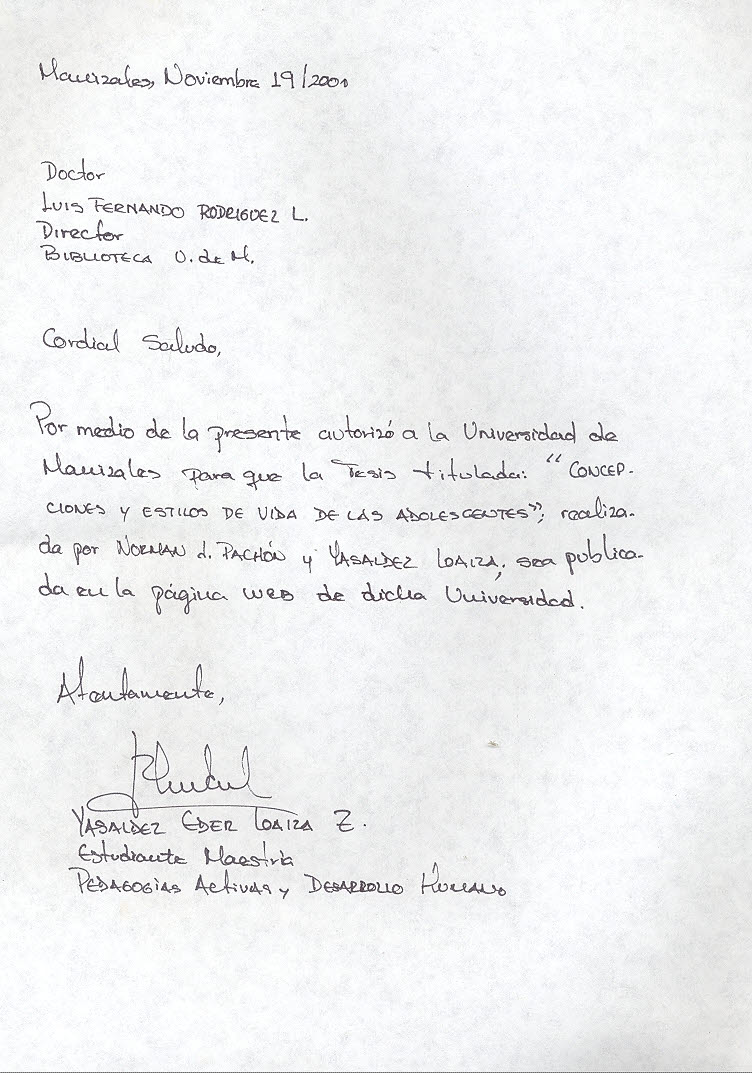 Manizales, Noviembre 19/2001
Doctor
LUIS FERNANDO RODRIGUEZ L.
Director
BIBLIOTECA U. de M.
Cordial Saludo,
Por medio de la presente autorizó a la Universidad de
Manizales para que la Tesis titulada: "CONCEP-
CIONES Y ESTILOS DE VIDA DE LAS ADOLESCENTES"; realiza-
da por NORMAN J. PACHÓN y YASALDEZ LOAIZA, sea publica-
da en la página web de dicha Universidad.
Atentamente,
YASALDEZ EDER LOAIZA Z.
Estudiante Maestría
PEDAGOGÍAS ACTIVAS y DESARROLLO HUMANO